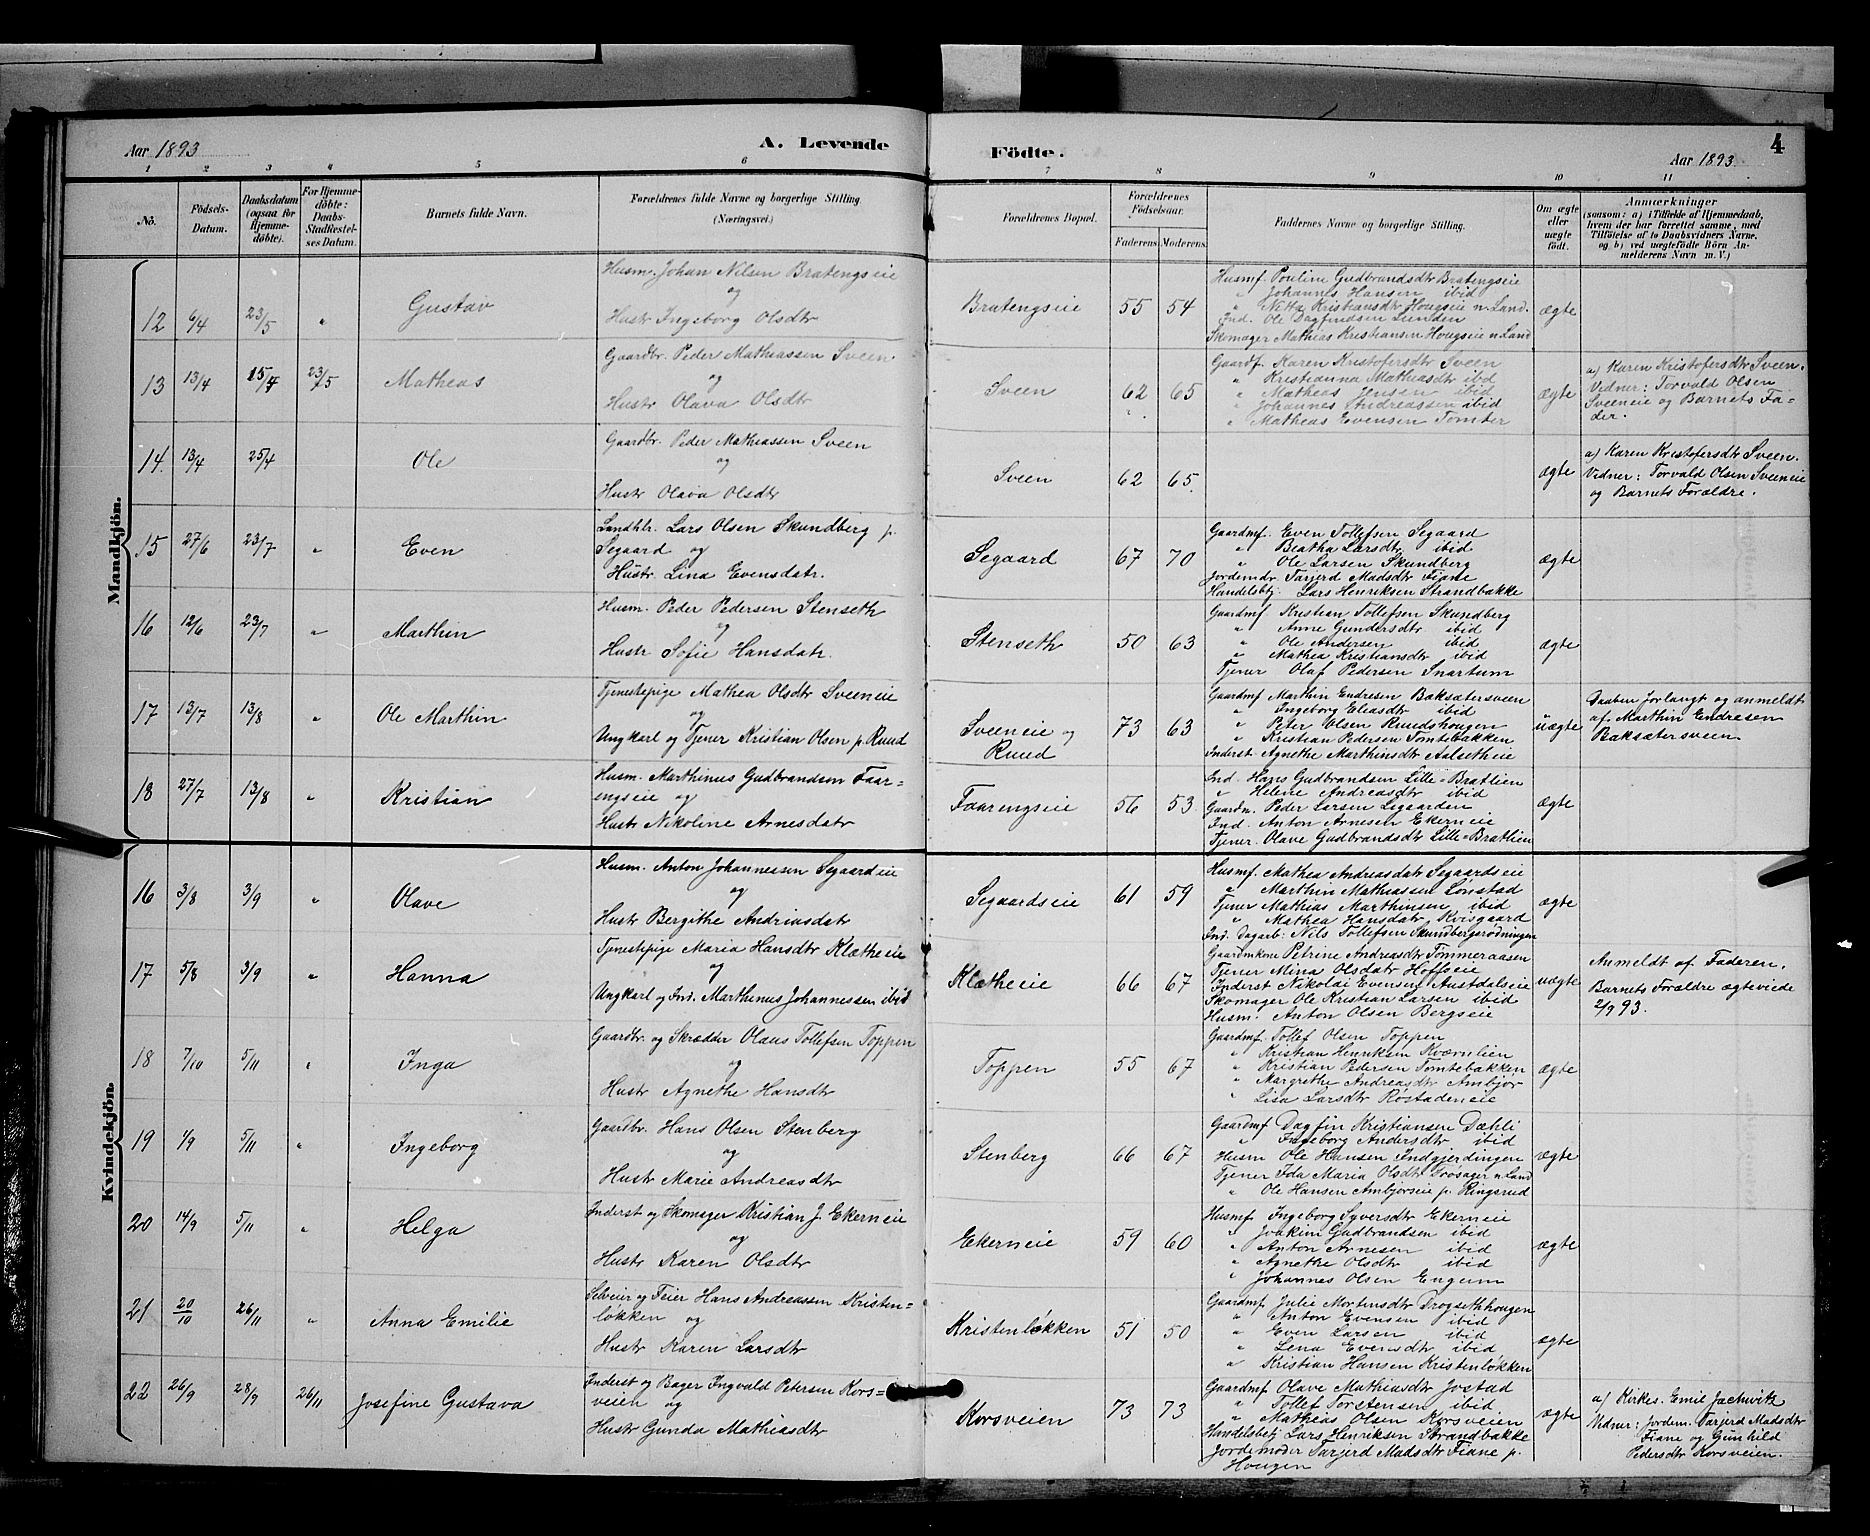 Aar 1893 A. Levende
1 2 3 4 5 6
No. Födsels-Datum. Daabsdatum (ogsaa for Hjemmedöbte). For Hjemmedöbte: Daabs-Stadfæstelses Datum. Barnets fulde Navn. Forældrenes fulde Navne og borgerlige Stilling (Næringsvei.)
Mandkjön.
Husm. Johan Nilsen Bratengseie
og
12 6/4 23/5 " Gustav Hustr Ingeborg Olsdtr
Gaardbr. Peder Mathiassen Sveen
og
13 13/4 15/4 23/5 Matheas Hustr Olava Olsdtr
Gaardbr. Peder Mathiassen Sveen
og
14. 13/4 25/4 Ole Hustr Olava Olsdtr
Landhlr. Lars Olsen Skundberg p.
Segaard og
15 27/6 23/7 " Even Hustr. Lina Evensdatr.
Husm. Peder Pedersen Stenseth
og
16 12/6 23/7 " Marthin Hustr Sofie Hansdatr.
Tjenestepige Mathea Olsdtr Sveeneie
og
17 13/7 13/8 " Ole Marthin Ungkarl og Tjener Kristian Olsen p. Ruud
Husm. Marthinus Gudbrandsen Faar-
engseie og
18 27/7 13/8 " Kristian Hustr Nikoline Arnesdatr
Kvindekjön.
Husm. Anton Johannessen Segaardseie
og
16 3/8 3/9 " Olave Hustr Bergithe Andriasdatr
Tjenestepige Maria Hansdtr Klætheie
og
17 5/8 3/9 " Hanna Ungkarl og Ind. Marthinus Johannessen ibid
Gaardbr. og Skrædder Olaus Tollefsen Toppen
og
18 7/10 5/11 " Inga Hustr Agnethe Hansdtr
Gaardbr. Hans Olsen Stenberg
og
19 1/9 5/11 " Ingeborg Hustr Marie Andreasdtr
Inderst og Skomager Kristian J. Ekerneie
og
20 14/9 5/11 " Helga Hustr Karen Olsdtr
Selveier og Feier Hans Andreassen Kristen-
løkken og
21 20/10 26/11 " Anna Emilie Hustr Karen Larsdtr
Inderst og Bager Ingvald Petersen Kors-
veien og
22 26/9 28/9 26/11 Josefine Gustava Hustr Gunda Mathiasdtr
Födte. 4
Aar 1893
7 8 9 10 11
Forældrenes Bopæl. Forældrenes Födselsaar. Faderens Moderens. Faddernes Navne og borgerlige Stilling. Om ægte eller uægte födt. Anmærkninger (saasom: a) i Tilfælde af Hjemmedaab, hvem der har forrettet samme, med Tilföielse af to Daabsvidners Navne, og b) ved uægtefödte Börn Anmelderens Navn m. V.)
Bratengseie 55 54 ægte
Husmf. Pouline Gudbrandsdtr Bratengseie
" Johannes Hansen ibid
" Netta Kristiansdtr Hougseie n. Land.
Ind. Ole Dagfindsen Lunden
Skomager Mathias Kristiansen Hougseie n Land
Sveen 62 65 ægte
Gaardf. Karen Kristofersdtr Sveen
" Kristianna Mathiasdtr ibd
" Matheas Jensen ibid
" Johannes Andreassen ibid
" Matheas Evensen Tomter
a) Karen Kristofersdtr Sveen.
Vidner: Torvald Olsen
Sveeneie og Barnets Fa-
der.
Sveen 62 65. ægte
a) Karen Kristofersdtr Sveen.
Vidner: Torvald Olsen Sveeneie
og Barnets Forældre.
Segaard 67 70 ægte
Gaardmf. Even Tollefsen Segaard
" Beatha Larsdtr ibid
" Ole Larsen Skundberg
Jordemdr Tarjerd Madsdtr Fiane
Handelsbtj. Lars Henriksen Strandbakke
Stenseth 50 63 ægte
Gaardmf. Kristian Tollefsen Skundberg
" Anne Gundersdtr ibid
" Ole Andersen ibid
" Mathea Kristiansdtr ibid
Tjener Olaf Pedersen Snartum
Sveeneie og
Ruud 73 63 uægte
Gaardmf Marthin Endresen Baksætersveen
" Ingeborg Eliasdtr ibid
" Peter Olsen Ruudshougen
" Kristian Pedersen Tomtebakken
Inderst Agnethe Marthinsdtr Aalsetheie
Daaben forlangt og anmeldt
af Marthin Endresen
Baksætersveen.
Faarengseie 56 53 ægte
Ind. Hans Gudbrandsen Lille-Bratlien
" Helene Andreasdtr ibid
Gaardm. Peder Larsen Segaarden
Ind. Anton Arnesen Ekerneie
Tjener. Olave Gudbrandsdtr Lille-Bratlien
Segaardseie 61 59 ægte
Husmf. Mathea Andreasdatr Segaardseie
" Marthin Mathiassen Lønstad
Tjener Mathias Marthinsen ibid
" Mathea Hansdatr, Kvisgaard
Ind. Dagarb: Nils Tollefsen Skundbergsrødningen
Klætheie 66 67 uægte
Gaardmkone Petrine Andreasdtr Tommeraasen
Tjener Mina Olsdatr Hoffseie
Inderst Nikolai Evensen Austdalseie
Skomager Ole Kristian Larsen ibid
Husm. Anton Olsen Bergseie
Anmeldt af Faderen.
Barnets Forældre ægteviede
2/9 93.
Toppen 55 67 ægte
Gaardmf. Tollef Olsen Toppen
" Kristian Henriksen Kværnlien
" Kristian Pedersen Tomtebakken
" Margrethe Andreasdtr Ambjør
" Lisa Larsdtr Rostadeneie
Stenberg 66 67 ægte
Gaardmf Dagfin Kristiansen Dæhli
" Ingeborg Andersdtr ibid
Husm Ole Hansen Indgjerdingen
Tjener Ida Maria Olsdtr Grøsager n Land
" Ole Hansen Ambjørseie p. Ringsrud
Ekerneie 59 60 ægte
Husmf Ingeborg Syversdtr Ekerneie
" Joakim Gudbrandsen ibid
" Anton Arnesen ibid
" Agnethe Olsdtr ibid
" Johannes Olsen Engeim
Kristenløkken 51 50 ægte
Gaardmf Julie Mortensdtr Trogsethhougen
" Anton Evensen ibid
" Even Larsen ibid
" Lena Evensdtr ibid
" Kristian Hansen Kristenløkken
Korsveien 73 73 ægte
Gaardmf. Olave Mathiasdtr Jøstad
" Tollef Torstensen ibid
" Mathias Olsen Korsveien
Handelsbtj Lars Henriksen Strandbakke
Jordemoder Tarjerd Madsdtr Fiane p.
Hougen
a) Kirkes. Emil Jachwitz
Vidner: Jordem. Tarjerd Madsdtr
Fiane og Gunhild
Pedersdtr Korsveien.